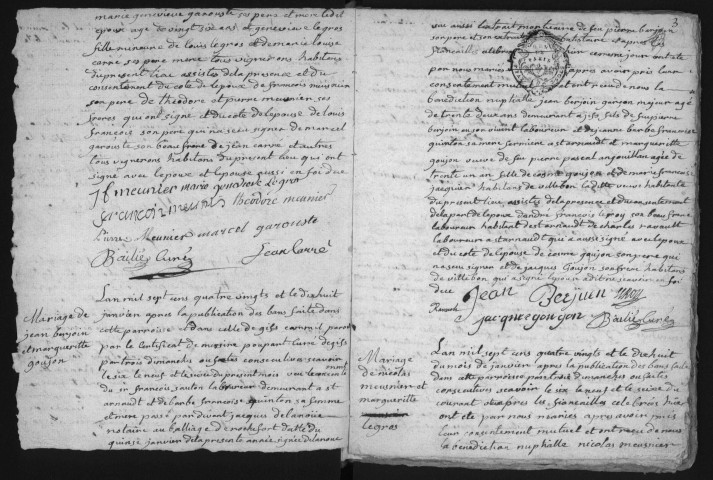 marie genevieve garouste ses pere et mere ledit
epoux age de vingt six ans et genevieve legros
fille mineure de louis legros et de marie louise
carre ses pere mere tous vignerons habitans
du present lieu assistes de la presence et du
consentement du cote de lepoux de francois meusnier
son pere de theodore et pierre meusnier ses
freres qui ont signé et du cote de lepouse de louis
francois son pere qui na seu signer de marcel
garouste son beau frere de jean carre et autres
tous vignerons habitans du present lieu qui ont
signé avec lepoux et lepouse aussi en foi de ce
meunier marie genevieve legros
francois meunier theodore meunier
pierre Meunier marcel garouste
Bailié Curé Jean Carré
Mariage de
jean berjoin
et margueritte
goujon
Lan mil sept cens quatre vingts et le dixhuit
janvier apres la publication des bans faite dans
cette parroisse et dans celle de gif comme il paroit
par le certificat de messire poupart curé de gif
par trois dimanches ou festes consecutives scavoir
le six le neuf et le seize du present mois vue
francois laboureur demeurant a st
arnault et de barbe francoise quinton sa femme
et mere passé par devant jacques delanoüe
notaire au bailliage de rochefort datté du
quinze janvier de la presente année signée delanoue
3
vue aussi lextrait mortuaire de feu pierre berjoin
son pere et apres les
fiancailles celebrees ce jour ont eté
par nous mariés apres avoir pris leur
consentement mutuel et ont receu de nous la
benediction nuptialle jean berjoin garçon majeur agé
de trente deux ans demeurant a gif fils de feu pierre
berjoin son vivant laboureur et de jeanne barbe francoise
quinton sa mere fermiere a st arnault et margueritte
goujon veuve de feu pierre pascal anjouillan agée de
trente un an fille de come goujon et de marie francoise
jacquin habitans de villebon laditte veuve habitante
du present lieu assistes de la presence et du consentement
de la part de lepoux dandre francois leroy son beau frere
laboureur habitant de st arnault de charles ravault
laboureur a st arnault qui a aussi signé avec lepoux
et du cote de lepouse de come goujon son pere qui
na seu signer et de jacques goujon son frere habitans
de villebon qui a signé lepouse a dit ne scavoir en foi
de ce Jean Berjuin Leroy
Ravault jacque goujon Bailié Curé
Mariage
de nicolas
meusnier et
margueritte
legros
Lan mil sept cens quatre vingts et le dixhuit
du mois de janvier apres la publication des bans faite
dans cette parroisse par trois dimanches ou festes
consecutives scavoir le six le neuf et le seize du
courant et apres les fiancailles celebrées hier
ont eté par nous mariés apres avoir pris
leur consentement mutuel et ont receu de nous
la benediction nuptialle nicolas meusnier